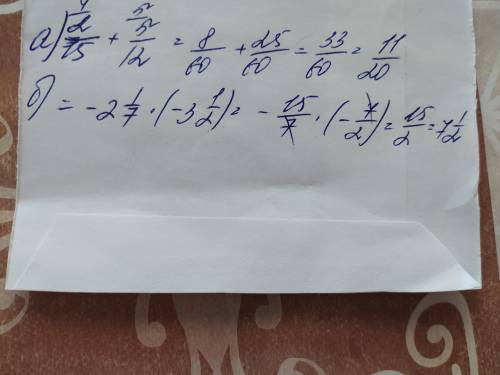 а) 2/15 + 5/12 = 8/60 + 25/60 = 33/60 = 11/20
б) = -2 1/7 · (-3 1/2) = - 15/7 · (- 7/2) = 15/2 = 7 1/2